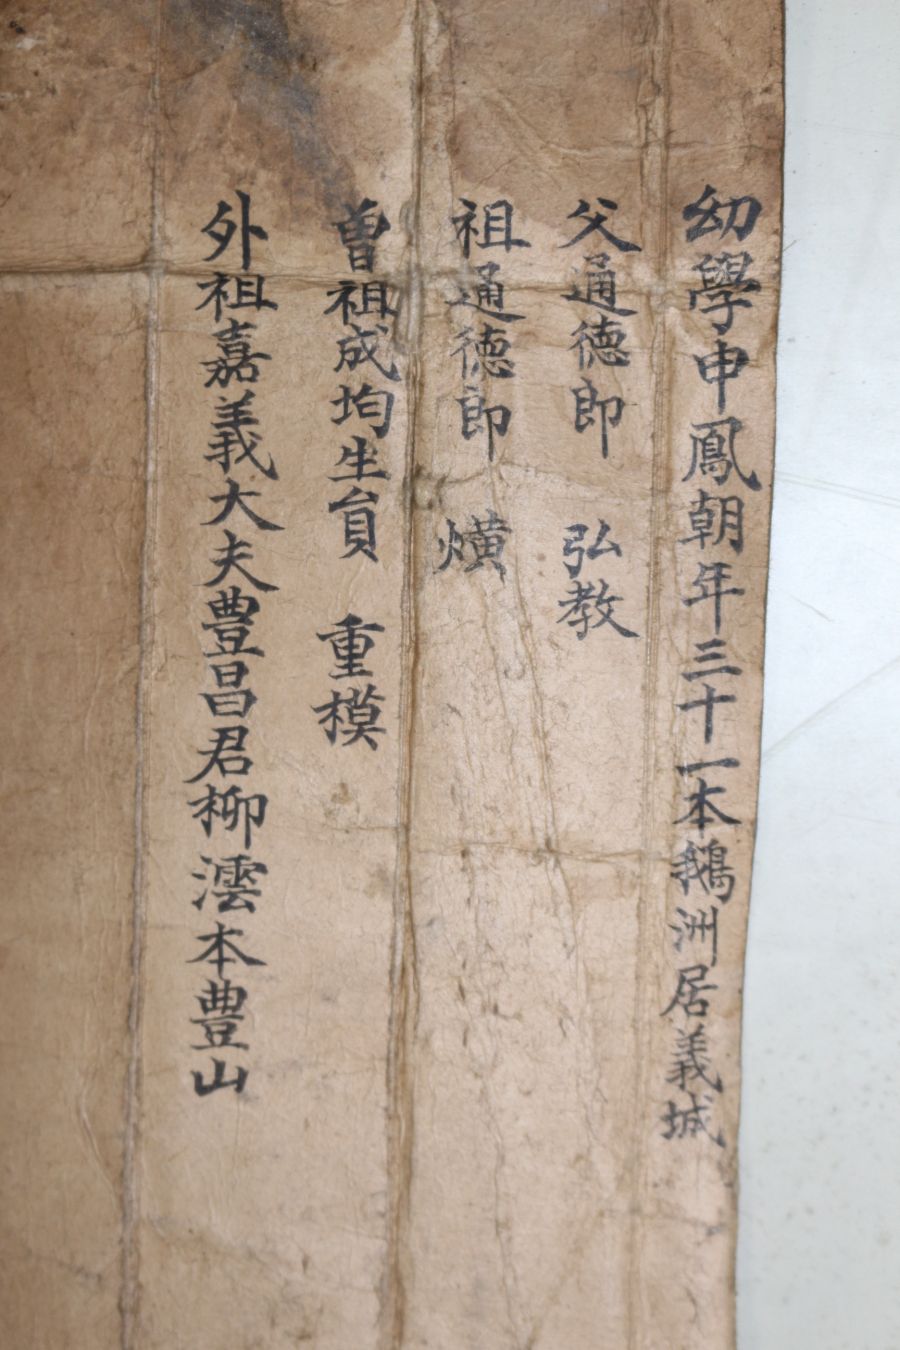 幼學申鳳朝年三十一本鵝洲居義城
父通德郎 弘教
祖通德郎 熿
曽祖成均生員 重模
外祖嘉義大夫豊昌君柳澐本豊山